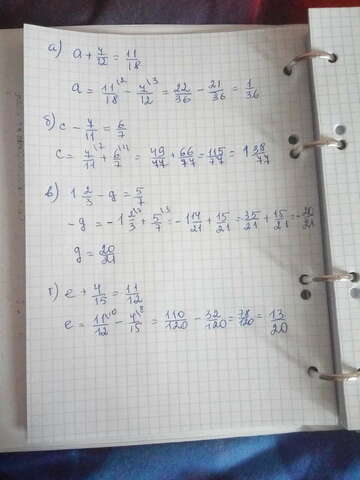 а) a + 7/12 = 11/18
a = 11\2/18 - 7\3/12 = 22/36 - 21/36 = 1/36
б) c - 7/11 = 6/7
c = 7\7/11 + 6\11/7 = 49/77 + 66/77 = 115/77 = 1 38/77
в) 1 2/3 - g = 5/7
-g = -1 2\7/3 + 5\3/7 = -1 14/21 + 15/21 = 35/21 + 15/21 = -20/21
g = 20/21
г) e + 4/15 = 11/12
e = 11\10/12 - 4\8/15 = 110/120 - 32/120 = 78/120 = 13/20